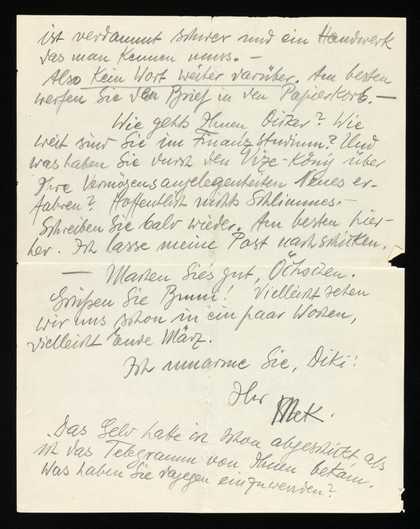 ist verdammt schwer und ein Handwerk
das man kennen muss. —
Also kein Wort weiter darüber. Am besten
werfen Sie den Brief in den Papierkorb. —
Wie gehts Ihnen, ? Wie
weit sind Sie im Finanzstudium? Und
was haben Sie durch den Vize-König über
Ihre Vermögensangelegenheiten Neues er-
fahren? Hoffentlich nichts Schlimmes. -
Schreiben Sie bald wieder. Am besten hier-
her. Ich lasse meine Post nachschicken.
— Machen Sies gut, .
Grüßen Sie ! Vielleicht sehen
wir uns schon in ein paar Wochen,
vielleicht Ende März.
Ich umarme Sie, Diki!
Ihr
.
Das Geld habe ich schon abgeschickt als
ich das Telegramm von Ihnen bekam.
Was haben Sie dagegen einzuwenden?